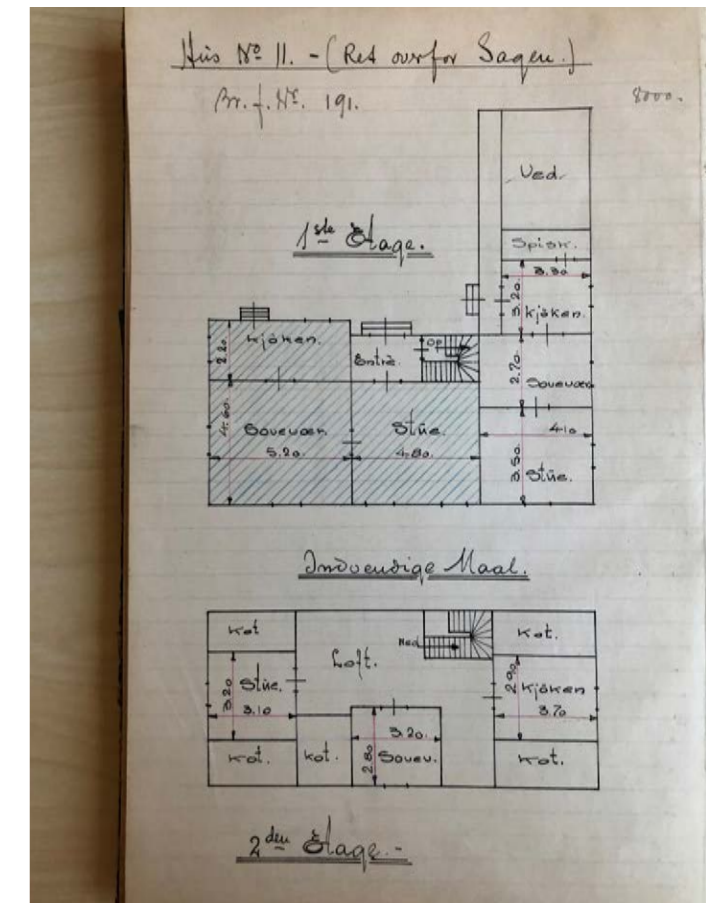 Hus No 11. - (Ret overfor Sagen.)
Br. f. No. 191.
8000.
Ved.
1ste Etage.
Spisk.
3.30
3.20
Kjöken.
Kjöken.
2.20
Entrè.
Op
2.70
Sovevær
4.60
Sovevær.
5.20
Stüe.
4.80
4.10
3.50
Stüe.
Indvendige Maal.
Kot
Ned
Kot.
Loft.
Stüe.
3.20
3.10
2.90
Kjöken
3.70
3.20.
2.80
Sovev.
Kot.
Kot.
Kot.
2den Etage.-